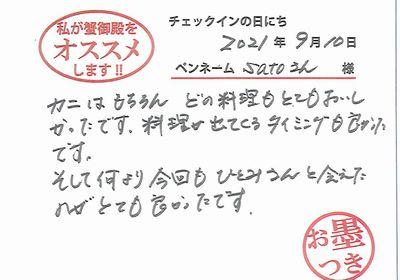 私が蟹御殿を
オススメ
します!!
チェックインの日にち
2021年 9月10日
ペンネーム satoさん 様
カニはもちろん どの料理もとてもおいし
かったです。料理が出てくるタイミングも良かった
です。
そして何より今回もひとみさんと会えた
のがとても良かったです。
お墨
つき